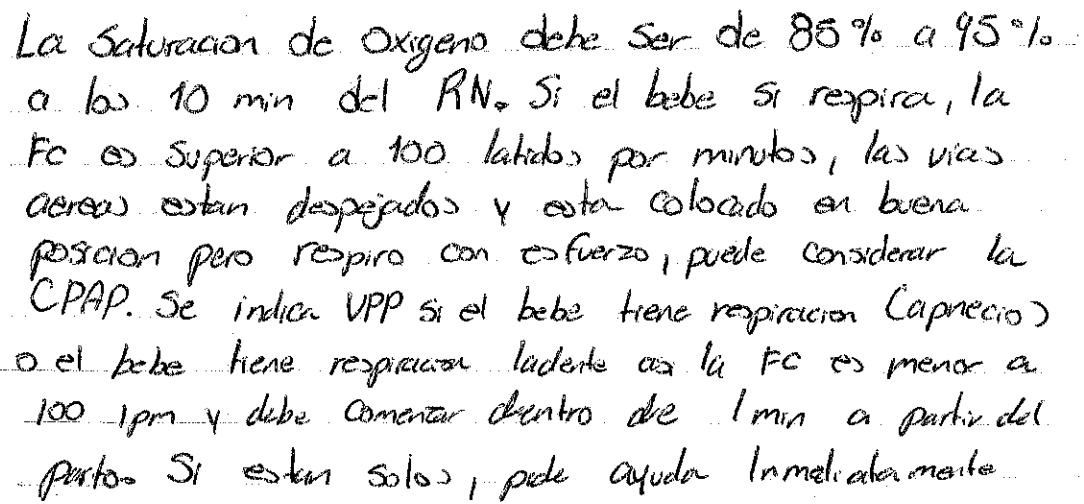 La Saturacion de Oxigeno debe ser de 85% a 95%
a los 10 min del RN. Si el bebe si respira, la
FC es Superior a 100 latidos por minutos, las vias
aereas estan despejados y esta colocado en buena
posicion pero respira con esfuerzo, puede considerar la
CPAP. Se indica VPP si el bebe tiene respiracion
o el bebe tiene respiracion la FC es menor a
100 lpm y debe Comenzar dentro de 1 min a partir del
parto. Si estan solos, pide ayuda Inmediatamente